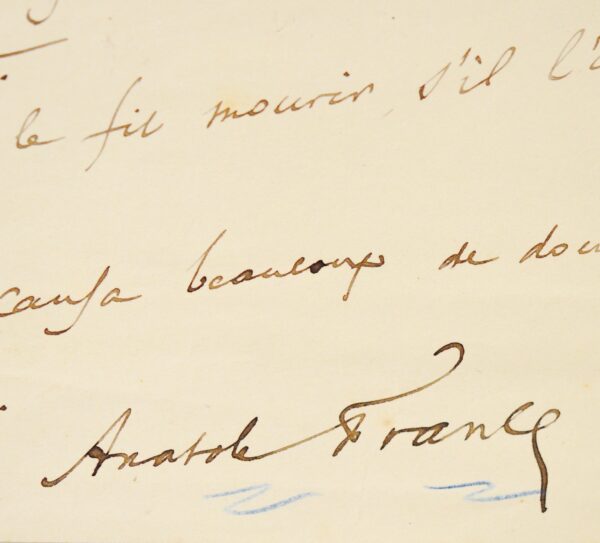 le fit mourir, s'il l'a
causa beaucoup de dou
Anatole France